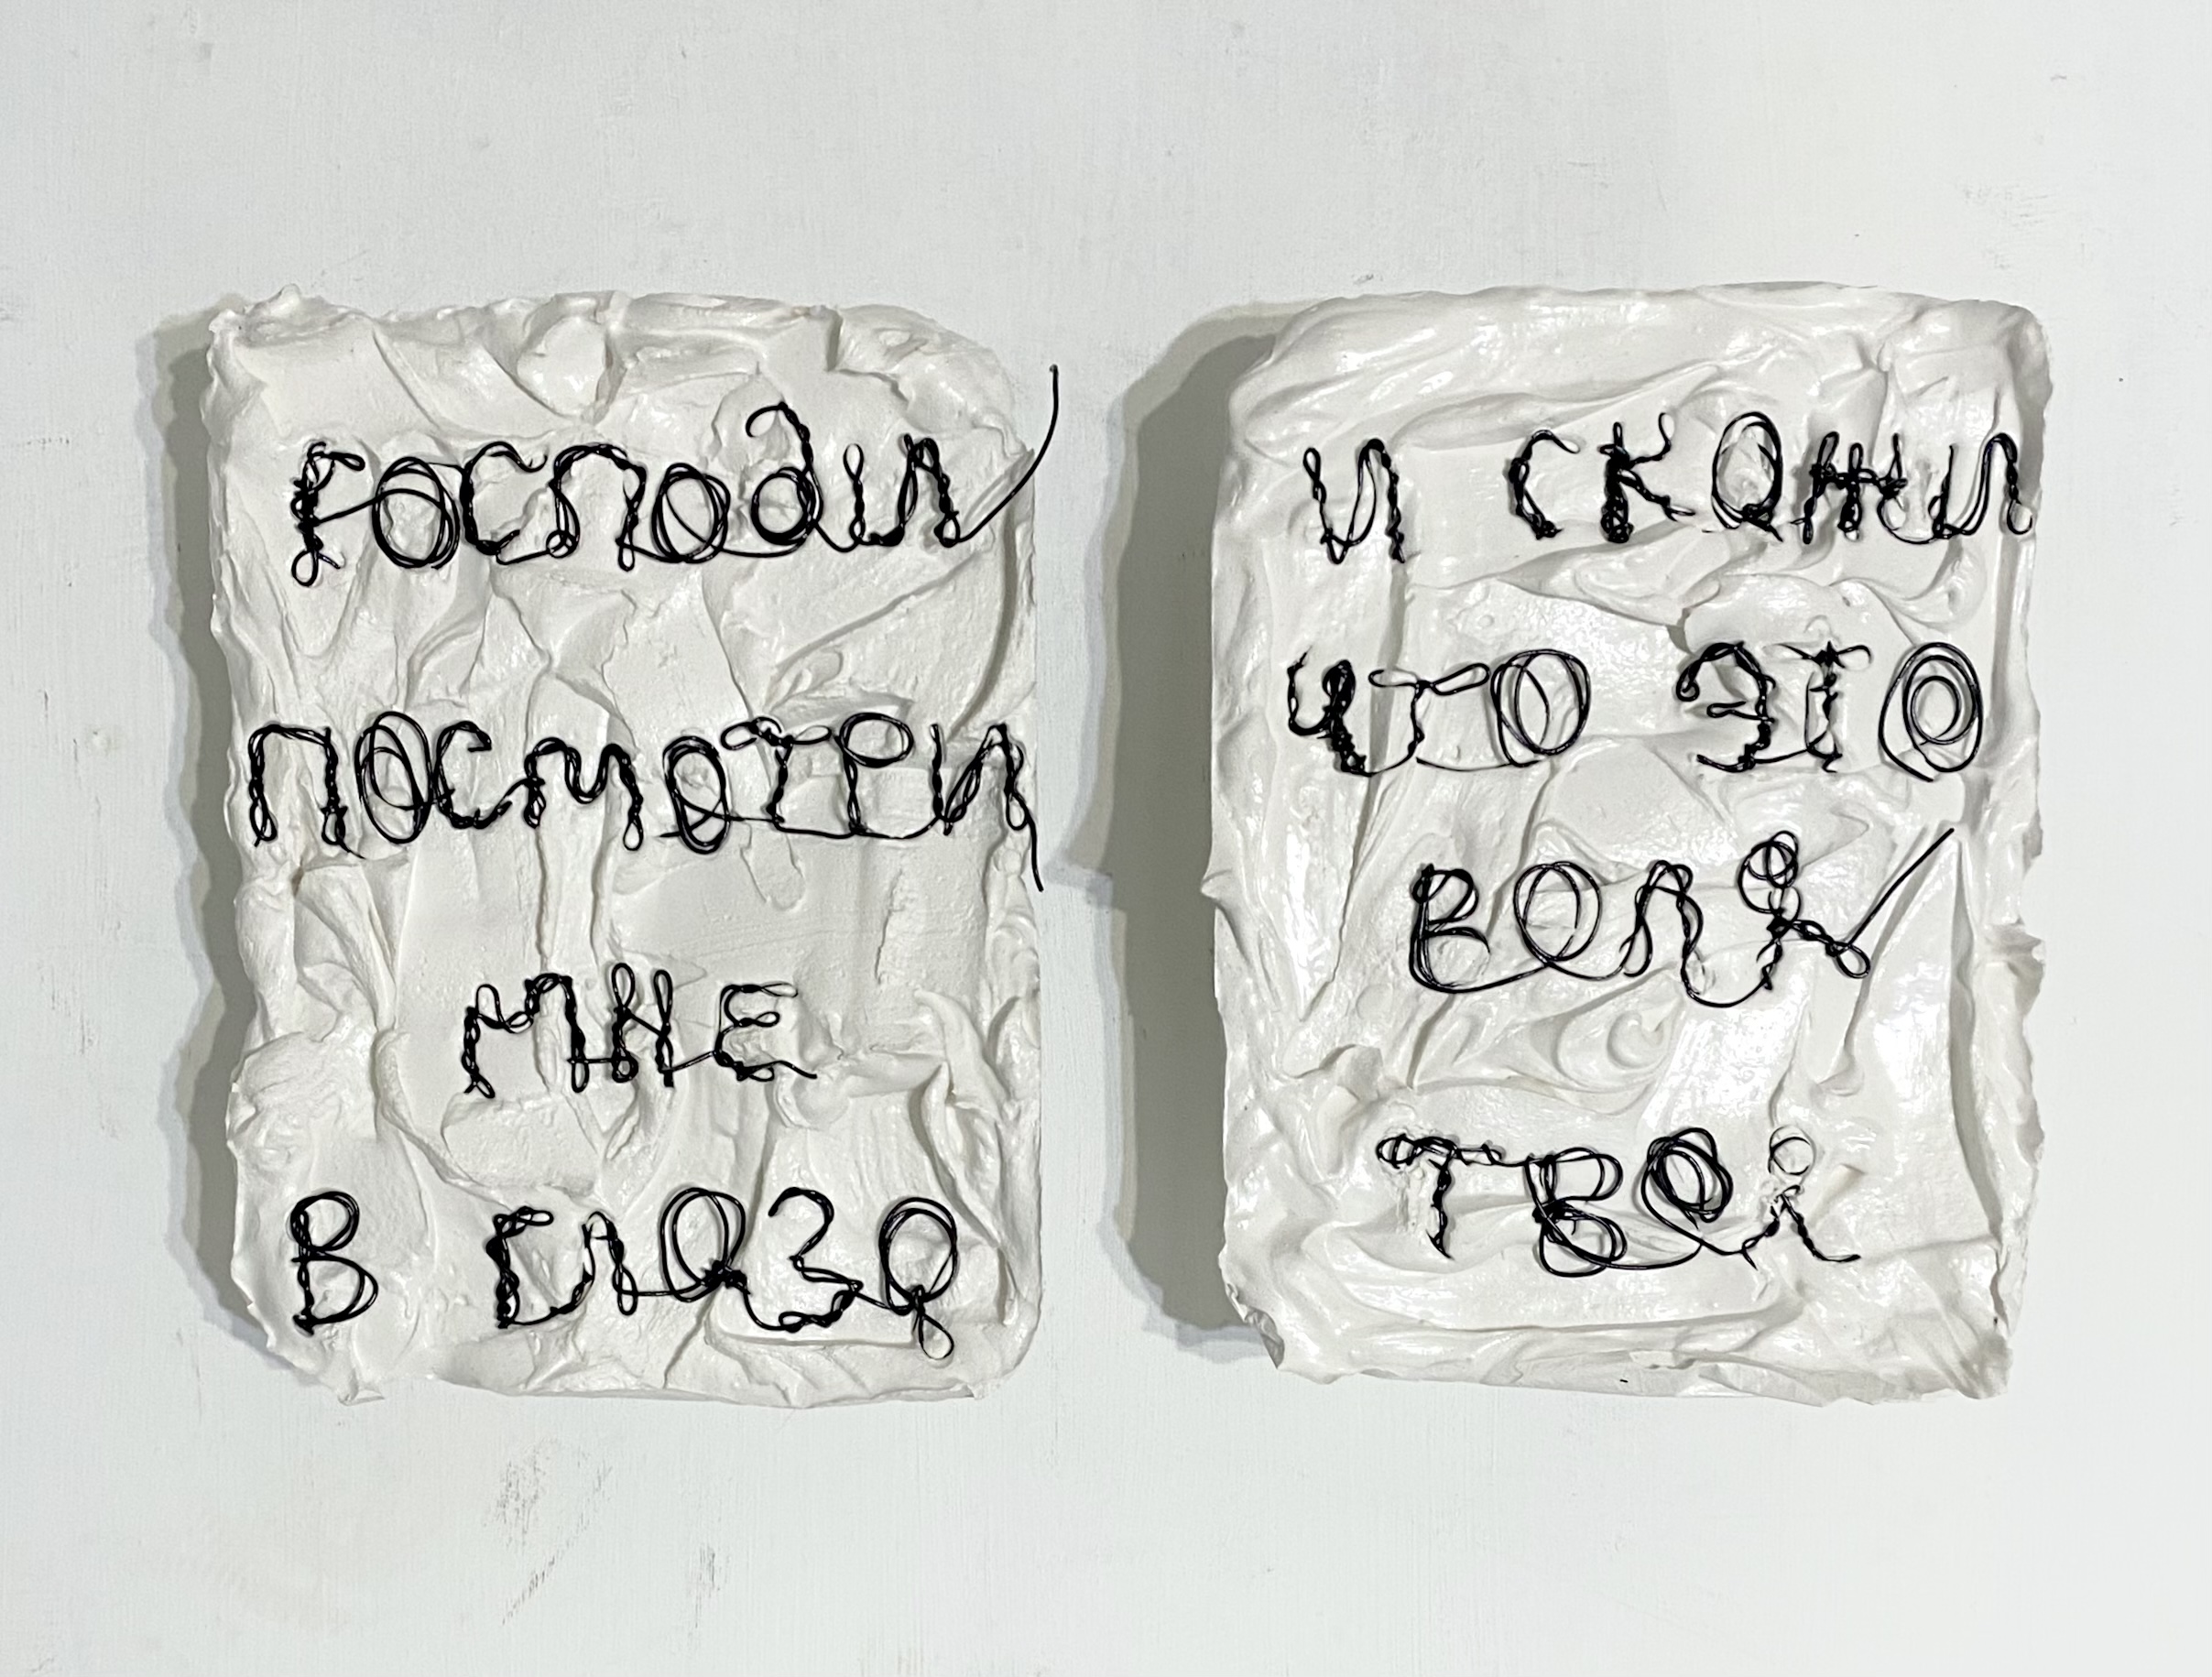 господи
посмотри
мне
в глаза
и скажи
что это
воля
твоя